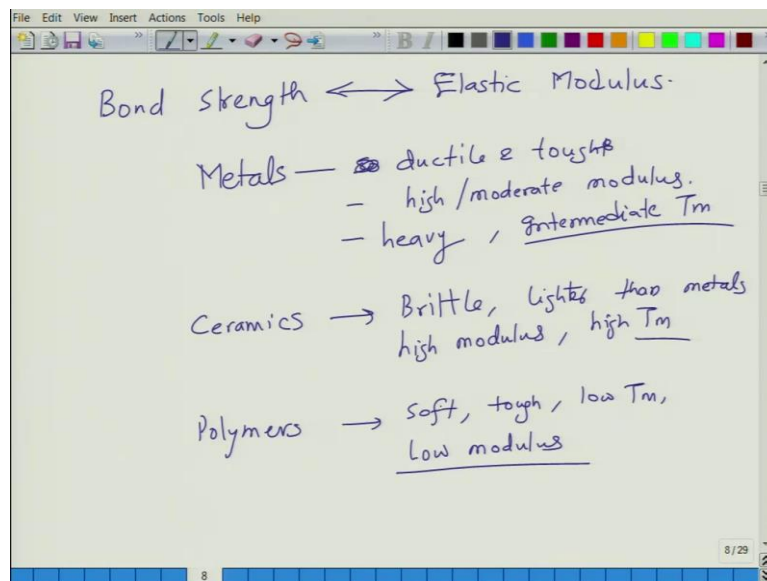 File Edit View Insert Actions Tools Help
B I
Bond Strength ⟷ Elastic Modulus.
Metals — ductile & tough
— high / moderate modulus.
— heavy, Intermediate Tm
Ceramics → Brittle, lighter than metals
high modulus, high Tm
Polymers → Soft, tough, low Tm,
Low modulus
8/29
8